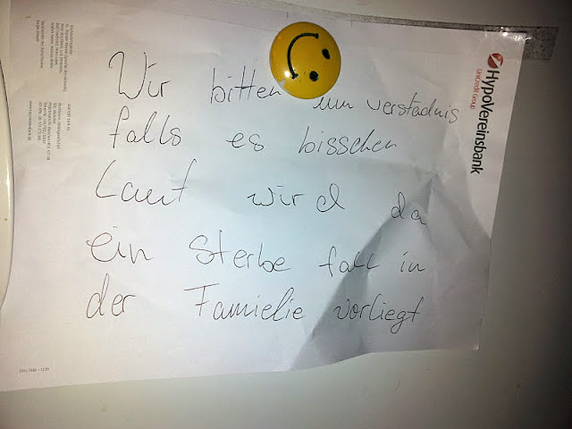 Wir bitten um verständnis
falls es bisschen
Laut wird da
ein Sterbe fall in
der Famielie vorliegt
HypoVereinsbank
UniCredit Group